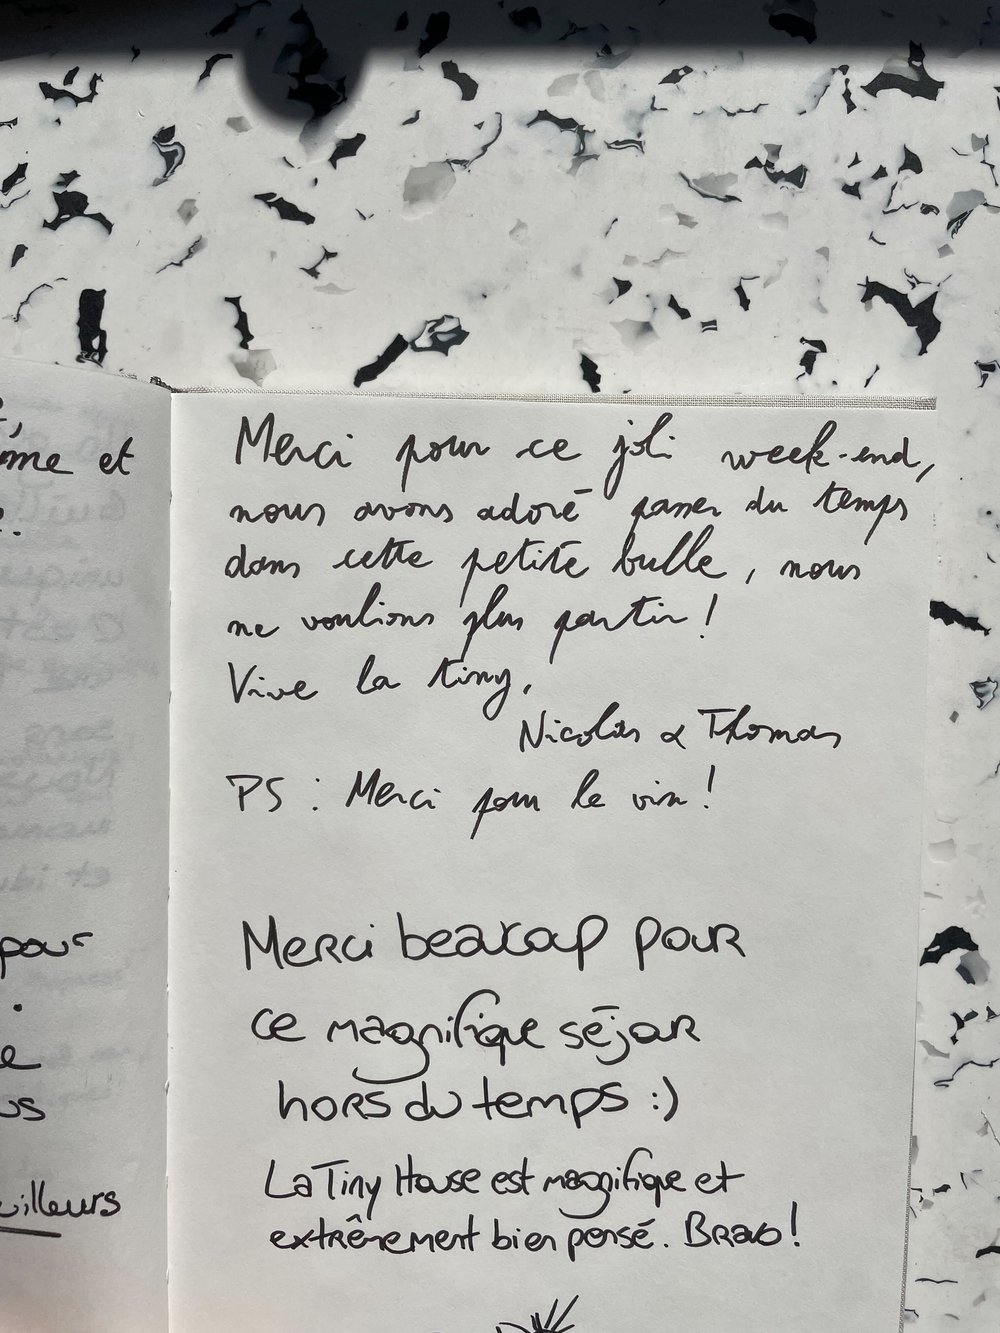 ême et
pour
.
e
us
eilleurs
Merci pour ce joli week-end,
nous avons adoré passer du temps
dans cette petite bulle, nous
ne voulions plus partir !
Vive la tiny,
Nicolas & Thomas
PS : Merci pour le vin !
Merci beaucoup pour
ce magnifique séjour
hors du temps :)
La Tiny House est magnifique et
extrêmement bien pensé. Bravo !